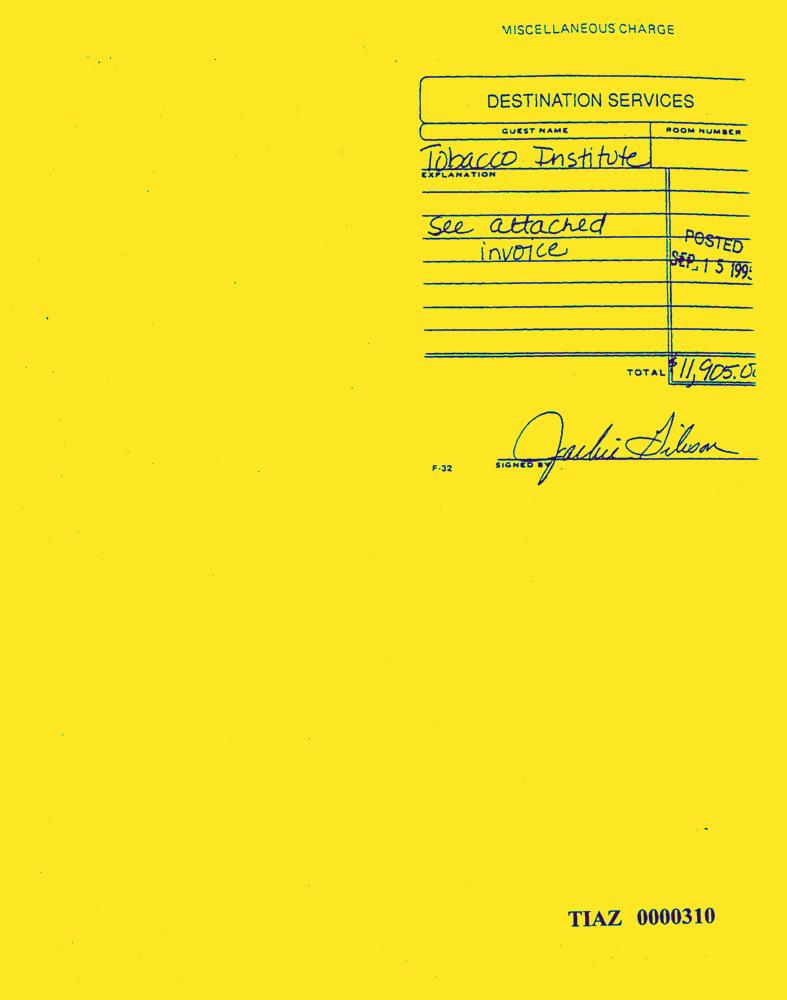 MISCELLANEOUS CHARGE
DESTINATION SERVICES
GUEST NAME ROOM NUMBER
Tobacco Institute
EXPLANATION
See attached
invoice
POSTED
SEP 15 199
TOTAL $11,905.0
SIGNED BY Jackie Gibson
F-32
TIAZ 0000310